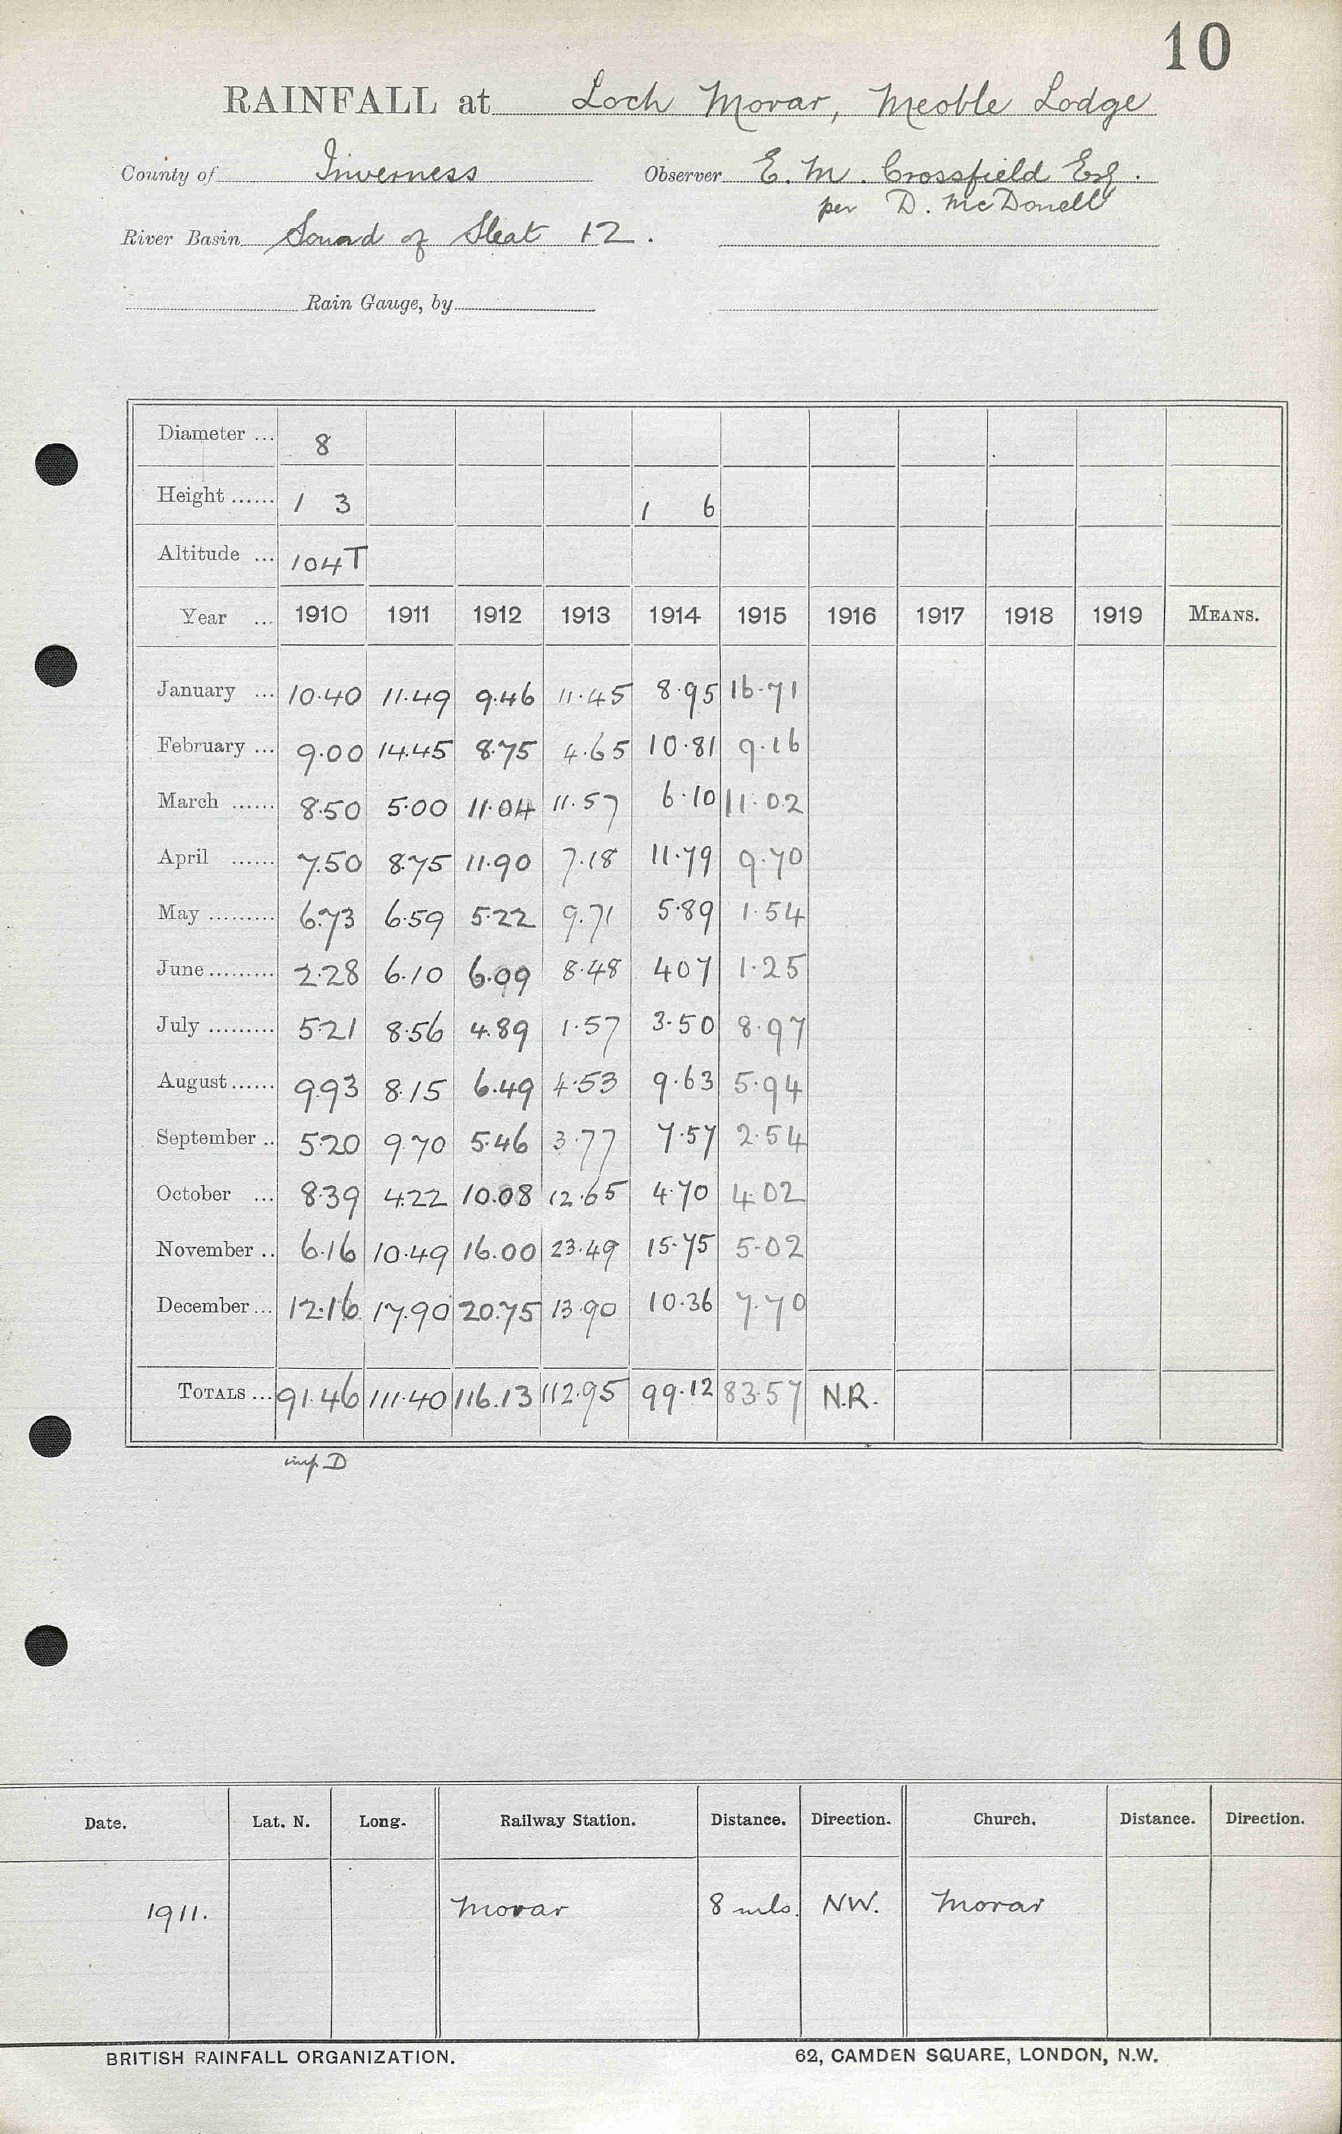 10
RAINFALL at Loch Morar, Meoble Lodge
County of Inverness Observer E. M. Crossfield Esq.
per D. McDonell
River Basin Sound of Sleat 12.
Rain Gauge, by
Diameter ... 8
Height ...... 1 3 1 6
Altitude ... 104T
Year ... 1910 1911 1912 1913 1914 1915 1916 1917 1918 1919 MEANS.
January ... 10.40 11.49 9.46 11.45 8.95 16.71
February ... 9.00 14.45 8.75 4.65 10.81 9.16
March ...... 8.50 5.00 11.04 11.57 6.10 11.02
April ...... 7.50 8.75 11.90 7.18 11.79 9.70
May ......... 6.73 6.59 5.22 9.71 5.89 1.54
June ......... 2.28 6.10 6.09 8.48 4 07 1.25
July ......... 5.21 8.56 4.89 1.57 3.50 8.97
August ...... 9.93 8.15 6.49 4.53 9.63 5.94
September .. 5.20 9.70 5.46 3.77 7.57 2.54
October ... 8.39 4.22 10.08 12.65 4.70 4.02
November .. 6.16 10.49 16.00 23.49 15.75 5.02
December ... 12.16 17.90 20.75 13.90 10.36 7.70
TOTALS ... 91.46 111.40 116.13 112.95 99.12 83.57 N.R.
inf. D
Date. Lat. N. Long. Railway Station. Distance. Direction. Church. Distance. Direction.
1911. Morar 8 mls. NW. Morar
BRITISH RAINFALL ORGANIZATION. 62, CAMDEN SQUARE, LONDON, N.W.